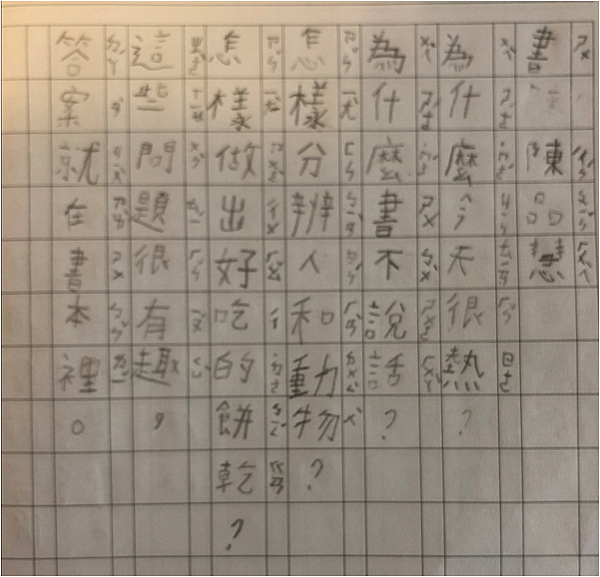 書
陳品慧
為什麼今天很熱？
為什麼書不說話？
怎樣分辨人和動物？
怎樣做出好吃的餅乾？
這些問題很有趣，
答案就在書本裡。